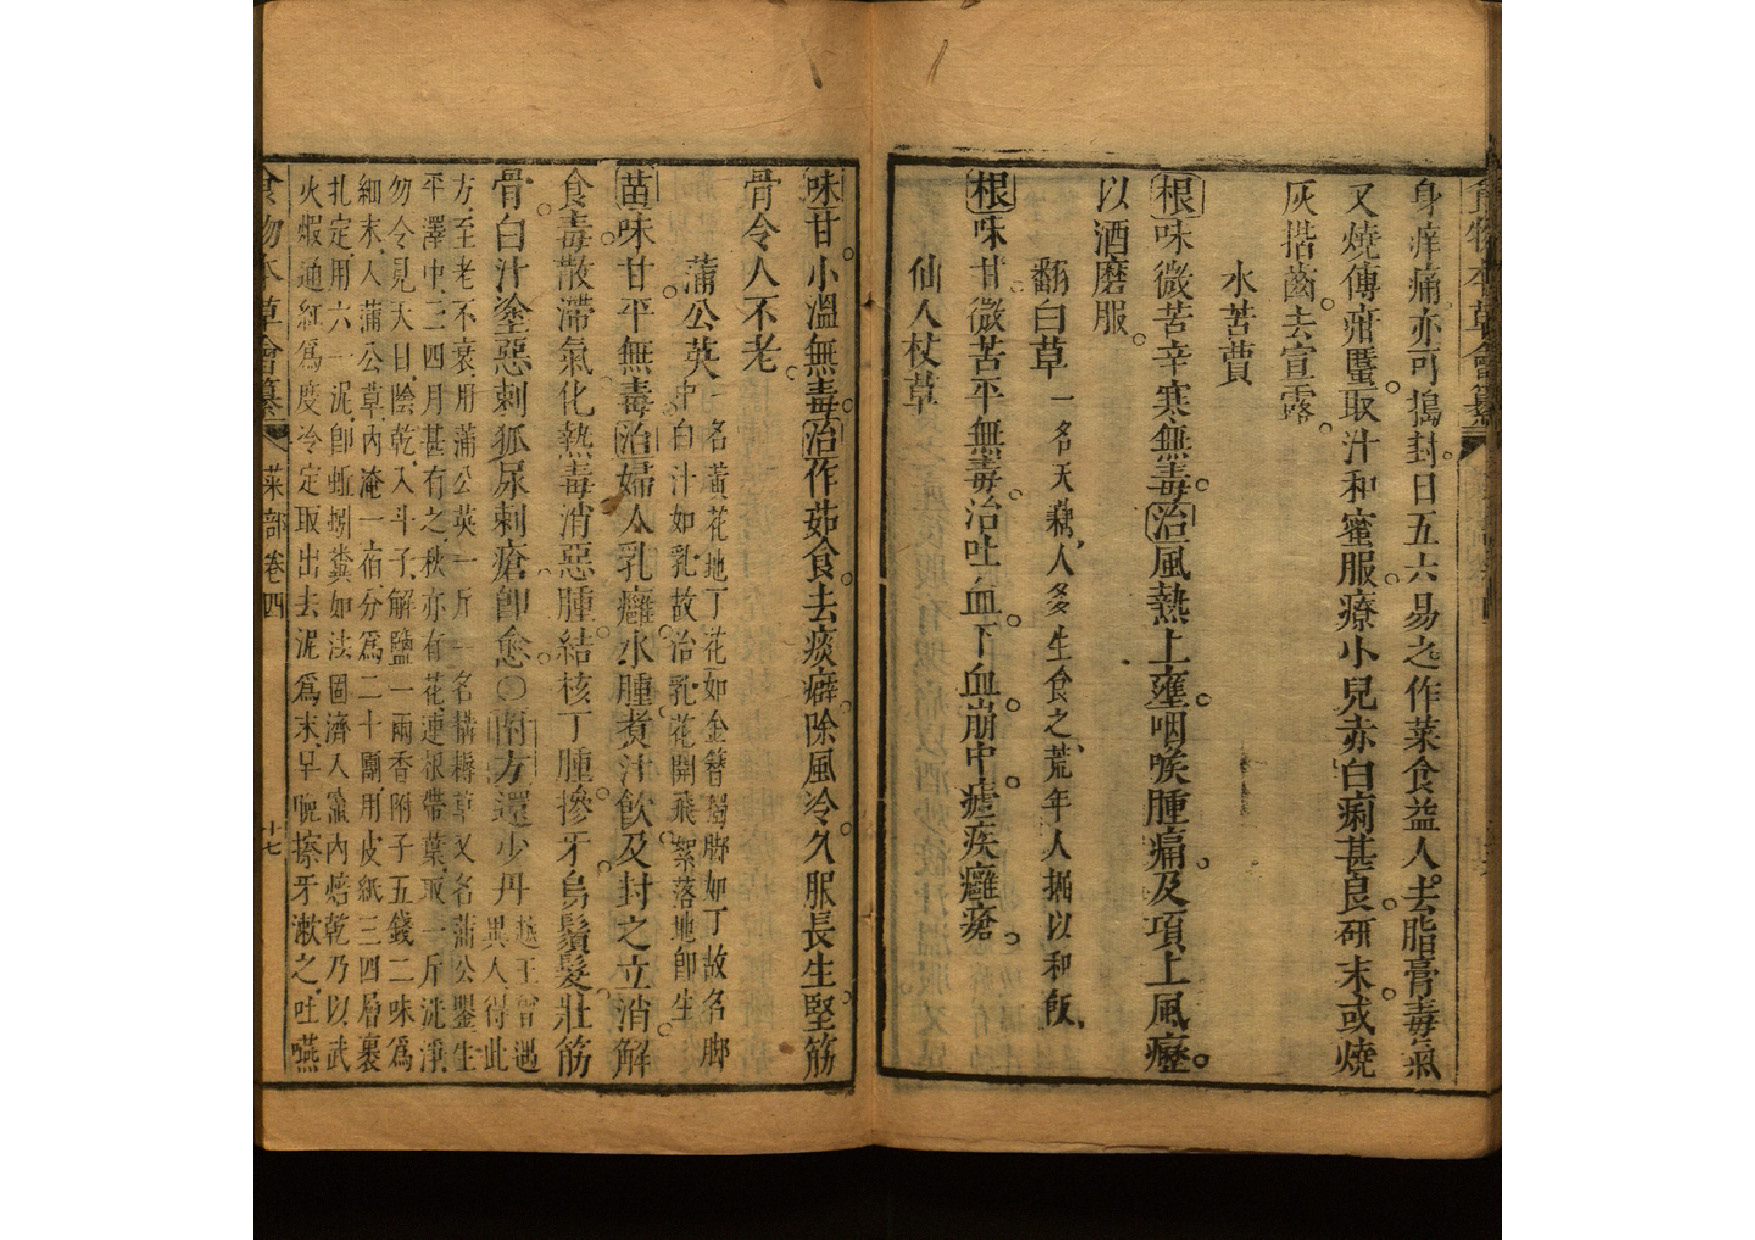 身痒痛亦可搗封日五六易之作菜食益人去脂膏毒氣
又燒傅疳䘌取汁和蜜服療小兒赤白痢甚良研末或燒
灰揩齒去宣露
水苦蕒
根味微苦辛寒無毒治風熱上壅咽喉腫痛及項上風癧
以酒磨服
翻白草一名天藕人多生食之荒年人掘以和飯
根味甘微苦平無毒治吐血下血崩中瘧疾癰瘡
仙人杖草
味甘小溫無毒治作茹食去痰癖除風冷久服長生堅筋
骨令人不老
蒲公英一名黃花地丁花如金簪獨脚如丁故名脚
中白汁如乳故治乳花開飛絮落地卽生
苗味甘平無毒治婦人乳癰水腫煮汁飲及封之立消解
食毒散滯氣化熱毒消惡腫結核丁腫摻牙烏鬚髮壯筋
骨白汁塗惡刺狐尿刺瘡卽愈〇附方還少丹越王曾遇
異人得此
方至老不衰用蒲公英一斤一名耩耨草又名蒲公罌生
平澤中三四月甚有之秋亦有花連根帶葉取一斤洗淨
勿令見天日陰乾入斗子解鹽一兩香附子五錢二味爲
細末入蒲公草內淹一宿分爲二十團用皮紙三四層裹
扎定用六一泥卽蚯蚓糞如法固濟入竈內焙乾乃以武
火煅通紅爲度冷定取出去泥爲末早晚擦牙漱之吐嚥
食物本草會纂 菜部卷四 十七